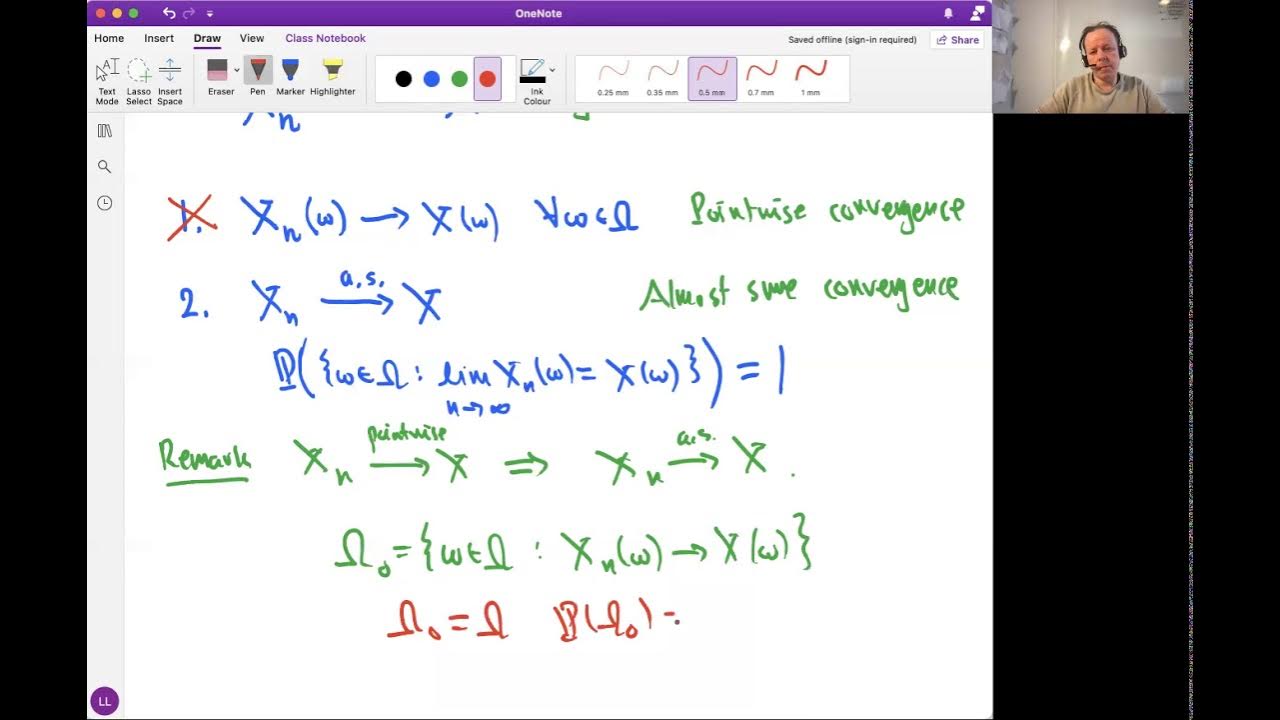 OneNote
Home Insert Draw View Class Notebook
Saved offline (sign-in required) Share
Text Mode Lasso Select Insert Space Eraser Pen Marker Highlighter Ink Colour 0.25 mm 0.35 mm 0.5 mm 0.7 mm 1 mm
Xₙ
1. Xₙ(ω) → X(ω) ∀ω∈Ω Pointwise convergence
2. Xₙ —a.s.→ X Almost sure convergence
ℙ({ω∈Ω : lim_{n→∞} Xₙ(ω) = X(ω)}) = 1
Remark Xₙ —pointwise→ X ⇒ Xₙ —a.s.→ X.
Ω₀ = {ω∈Ω : Xₙ(ω) → X(ω)}
Ω₀ = Ω ℙ(Ω₀) =
LL